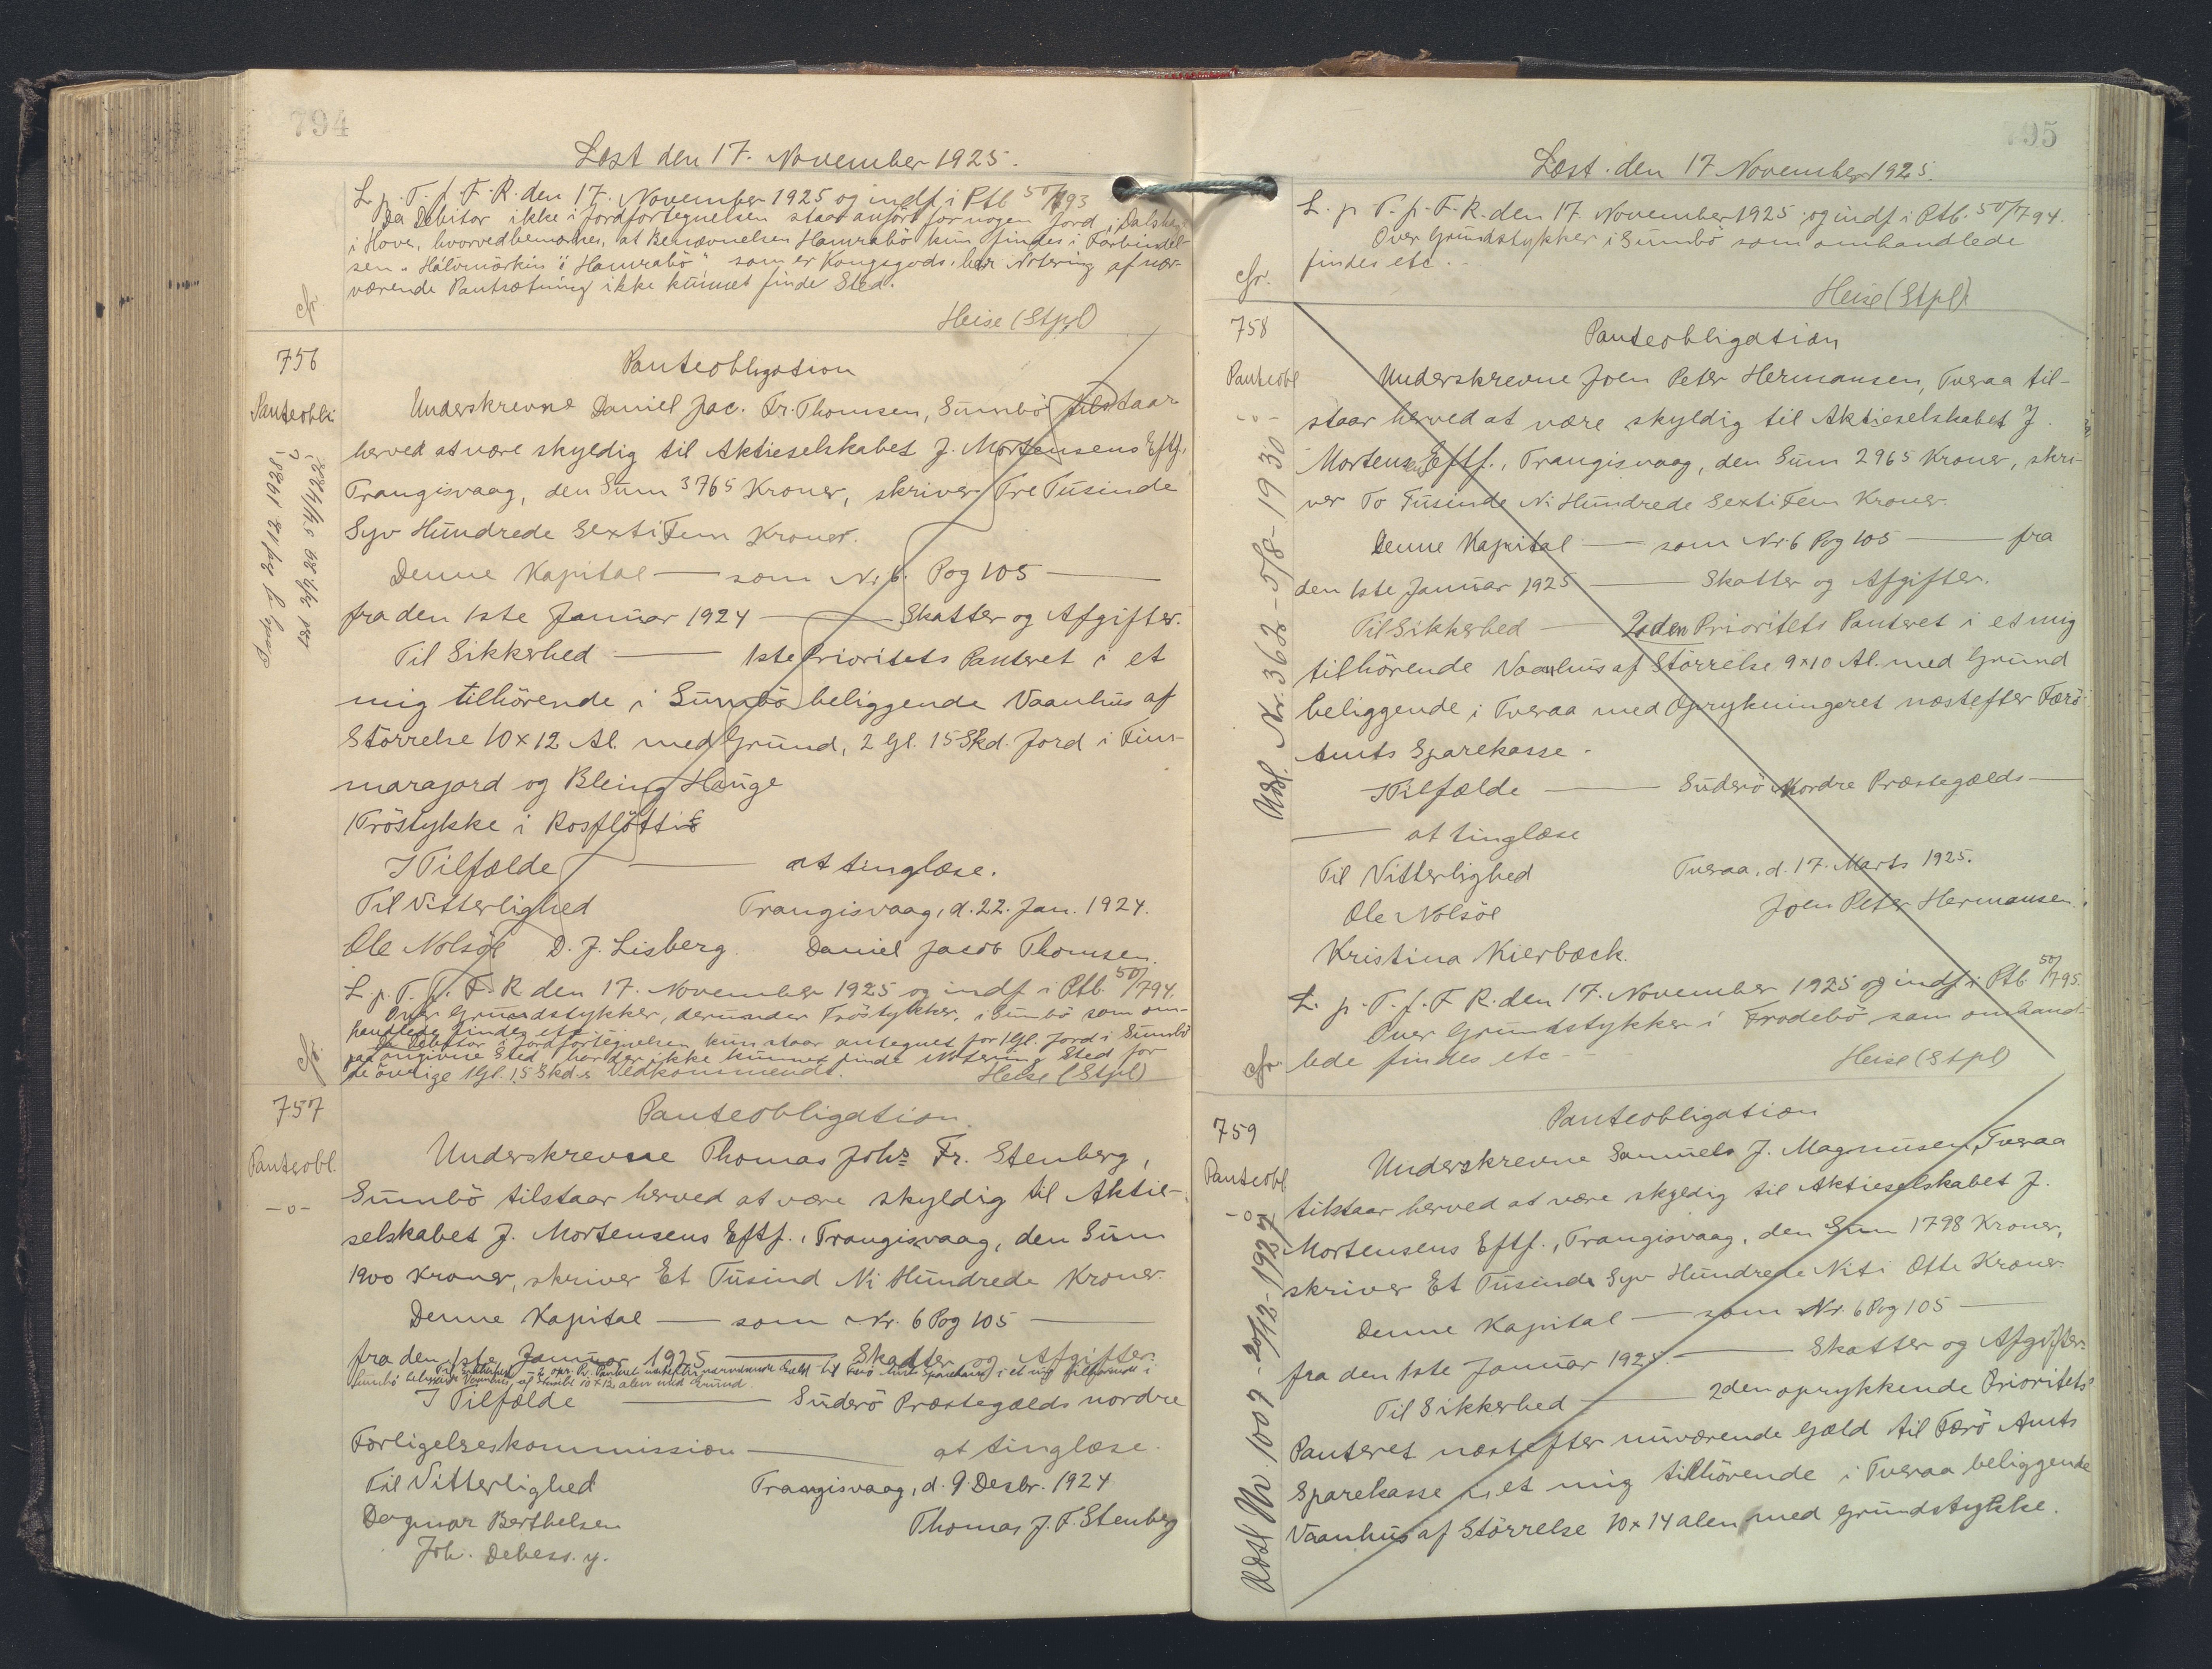 794
Læst den 17. November 1925.
L. p. T. f. F. R. den 17. November 1925 og indf. i Ptb. 50/793
Da Debitor ikke i Jordfortegnelsen staar anført for nogen Jord i
i Hove, hvorved bemærkes, at Benævnelsen Hamrabö kun findes i Forbindel-
sen "Hálvmörkin í Hamrabö" som er Kongsgods, har Notering af nær-
værende Pantsætning ikke kunnet finde Sted.
cfr.
Heise (Stpl)
756
Panteobl.
Panteobligation
Underskrevne Daniel Jac. Fr. Thomsen, Sumbö tilstaar
herved at være skyldig til Aktieselskabet J. Mortensens Eftf.,
Trangisvaag, den Sum 3765 Kroner, skriver Tre Tusinde
Syv Hundrede SextiFem Kroner.
Denne Kapital — som Nr. 6. Pog 105 —
fra den 1ste Januar 1924 — Skatter og Afgifter.
Til Sikkerhed — 1ste Prioritets Panteret i et
mig tilhörende i Sumbö beliggende Vaanhus af
Störrelse 10 x 12 Al. med Grund, 2 Gl. 15 Skd. Jord i
marajord og Bleing Hauge
1 Tröstykke i
I Tilfælde — at tinglæse.
Til Vitterlighed Trangisvaag, d. 22. Jan. 1924.
Ole Nolsöe D. J. Lisberg. Daniel Jacob Thomsen.
L. p. T. f. F. R. den 17. November 1925 og indf. i Ptb. 50/794.
Over Grundstykker, derunder Tröstykker, i Sumbö som om-
handledes findes etc.
Da Debitor i Jordfortegnelsen kun staar antegnet for 1 Gl. Jord i Sumbö
paa angivne Sted, har der ikke kunnet finde Notering Sted for
de övrige 1 Gl. 15 Skd.s Vedkommende.
cfr.
Heise (Stpl)
757
Panteobl.
-o-
Panteobligation.
Underskrevne Thomas Johs Fr. Stenberg,
Sumbö tilstaar herved at være skyldig til Aktie-
selskabet J. Mortensens Eftf., Trangisvaag, den Sum
1900 Kroner, skriver Et Tusind Ni Hundrede Kroner.
Denne Kapital — som Nr. 6 Pog 105 —
fra den 1ste Januar 1925 — Skatter og Afgifter.
Til Sikkerhed — 2 opr. Pr. Panteret næstefter nærværende Gæld til Færö Amts Sparekasse i et mig tilhörende i
Sumbö beliggende Vaanhus af Störrelse 10 x 12 alen med Grund
I Tilfælde — Suderö Præstegælds nordre
Forligelseskommission — at tinglæse.
Til Vitterlighed Trangisvaag, d. 9. Desbr. 1924
Dagmar Berthelsen Thomas J. F. Stenberg
Joh. Debess. y.
795
Læst den 17 November 1925.
L. p. T. f. F. R. den 17. November 1925 og indf. i Ptb. 50/794.
Over Grundstykker i Sumbö som omhandlede
findes etc.
cfr.
Heise (Stpl)
758
Panteobl
-o-
Panteobligation
Underskrevne Joen Peter Hermansen, Tveraa til-
staar herved at være skyldig til Aktieselskabet J.
Mortensens Eftf., Trangisvaag, den Sum 2965 Kroner, skri-
ver To Tusinde Ni Hundrede SextiFem Kroner.
Denne Kapital — som Nr 6 Pog 105 — fra
den 1ste Januar 1925 — Skatter og Afgifter.
Til Sikkerhed — 2den Prioritets Panteret i et mig
tilhörende Vaanhus af Störrelse 9 x 10 Al. med Grund
beliggende i Tveraa med Oprykningsret næstefter Færö
Amts Sparekasse.
I Tilfælde — Suderö Nordre Præstegælds —
— at tinglæse
Til Vitterlighed Tveraa, d. 17. Marts 1925.
Ole Nolsöe Joen Peter Hermansen.
Kristina Kierbæck.
Udsl. Nr. 362 - 5/8 - 1930
L. p. T. f. F. R. den 17. November 1925 og indf. i Ptb. 50/795.
Over Grundstykker i Frodebö som omhand-
lede findes etc
cfr.
Heise (Stpl)
759
Panteobl
-o-
Panteobligation
Underskrevne Samuel J. Magnusen, Tveraa
tilstaar herved at være skyldig til Aktieselskabet J.
Mortensens Eftf., Trangisvaag, den Sum 1798 Kroner,
skriver Et Tusinde Syv Hundrede Niti Otte Kroner.
Denne Kapital — som Nr. 6 Pog 105 —
fra den 1ste Januar 1925. — Skatter og Afgifter.
Til Sikkerhed — 2den oprykkende Prioritets
Panteret næstefter nuværende Gæld til Færö Amts
Sparekasse i et mig tilhörende i Tveraa beliggende
Vaanhus af Störrelse 10 x 14 alen med Grundstykke.
Udsl Nr 1009 - 20/12 - 1927